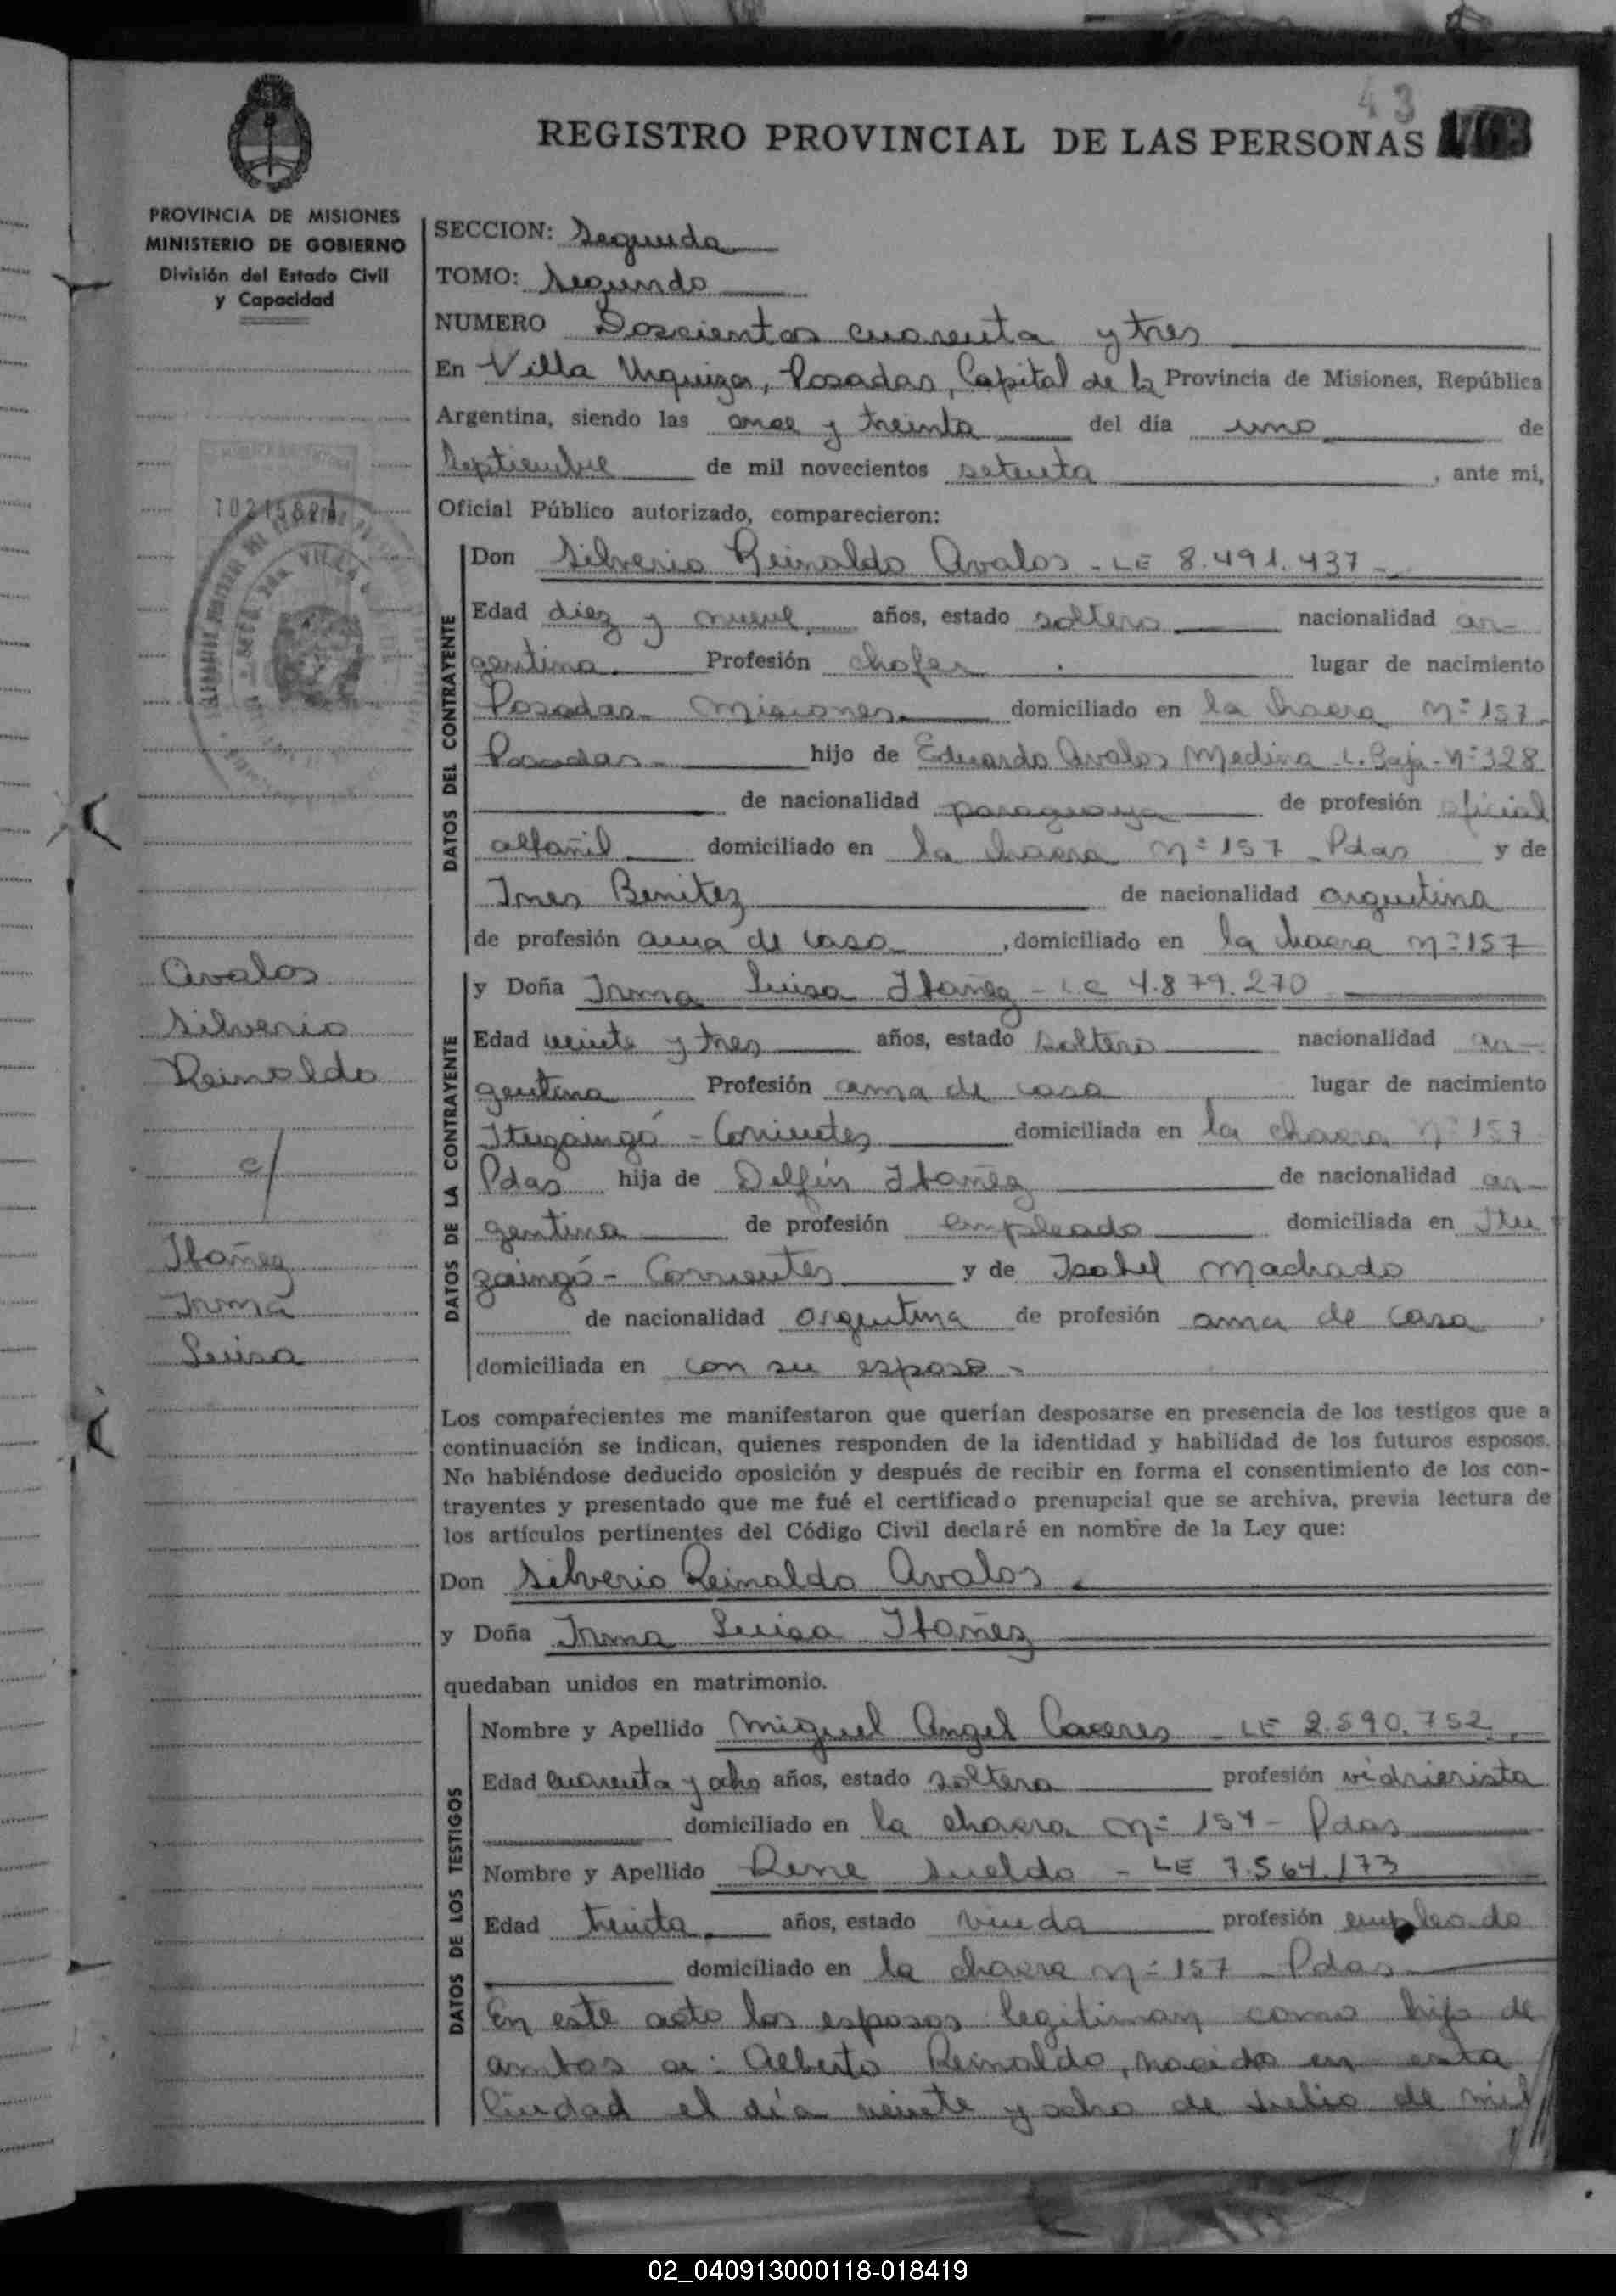 43
REGISTRO PROVINCIAL DE LAS PERSONAS
PROVINCIA DE MISIONES
MINISTERIO DE GOBIERNO
División del Estado Civil
y Capacidad
SECCION: Segunda
TOMO: Segundo
NUMERO Doscientos cuarenta y tres
En Villa Urquiza, Posadas, Capital de la Provincia de Misiones, República
Argentina, siendo las once y treinta del día uno de
Septiembre de mil novecientos setenta, ante mi,
Oficial Público autorizado, comparecieron:
DATOS DEL CONTRAYENTE
Don Silverio Reinaldo Avalos - LE 8.491.437 -
Edad diez y nueve años, estado soltero nacionalidad ar-
gentina. Profesión chofer lugar de nacimiento
Posadas - Misiones. domiciliado en la chacra Nº 157 -
Posadas - hijo de Eduardo Avalos Medina Nº 328
de nacionalidad paraguaya de profesión oficial
albañil domiciliado en la chacra nº 157 - Pdas y de
Ines Benitez de nacionalidad argentina
de profesión ama de casa, domiciliado en la chacra nº 157
DATOS DE LA CONTRAYENTE
y Doña Irma Luisa Ibañez - LC 4.879.270
Edad veinte y tres años, estado soltera nacionalidad ar-
gentina Profesión ama de casa lugar de nacimiento
Ituzaingó - Corrientes domiciliada en la chacra nº 157
Pdas hija de Delfín Ibañez de nacionalidad ar-
gentina de profesión empleado domiciliada en Itu
zaingó - Corrientes y de Isabel Machado
de nacionalidad argentina de profesión ama de casa
domiciliada en con su esposo -
Avalos
Silverio
Reinaldo
c/
Ibañez
Irma
Luisa
Los comparecientes me manifestaron que querían desposarse en presencia de los testigos que a
continuación se indican, quienes responden de la identidad y habilidad de los futuros esposos.
No habiéndose deducido oposición y después de recibir en forma el consentimiento de los con-
trayentes y presentado que me fué el certificado prenupcial que se archiva, previa lectura de
los artículos pertinentes del Código Civil declaré en nombre de la Ley que:
Don Silverio Reinaldo Avalos.
y Doña Irma Luisa Ibañez
quedaban unidos en matrimonio.
DATOS DE LOS TESTIGOS
Nombre y Apellido Miguel Angel Caceres - LE 2.590.752
Edad cuarenta y ocho años, estado soltero profesión vidrierista
domiciliado en la chacra nº 157 - Pdas
Nombre y Apellido Rene Sueldo - LE 7.564.173
Edad treinta años, estado viudo profesión empleado
domiciliado en la chacra nº 157 - Pdas
En este acto los esposos legitiman como hijo de
ambos a: Alberto Reinaldo, nacido en esta
Ciudad el día veinte y ocho de Julio de mil
02_040913000118-018419